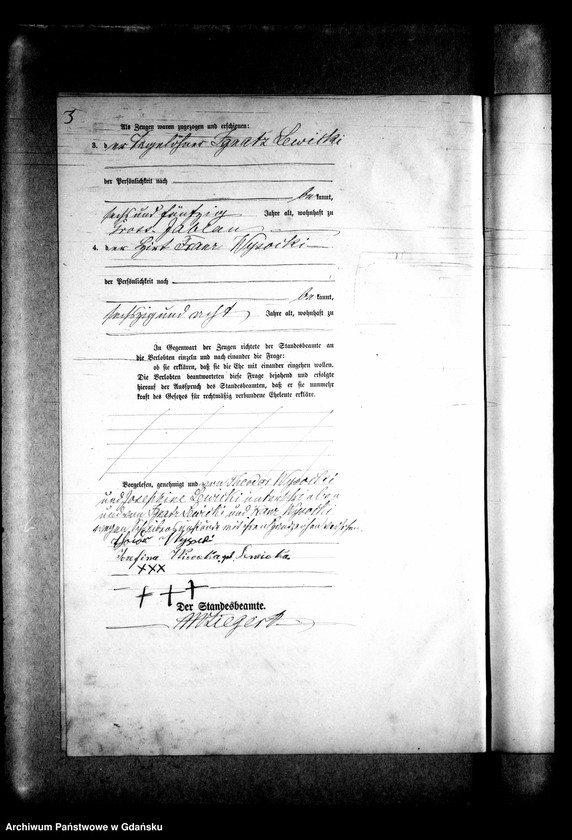 3
Als Zeugen waren zugezogen und erschienen:
3. der Tagelöhner Ignatz Lewicki
der Persönlichkeit nach
bekannt,
sechs und fünfzig Jahre alt, wohnhaft zu
Gross Jablau
4. der Hirt Franz Wysocki
der Persönlichkeit nach
bekannt,
sechszig und acht Jahre alt, wohnhaft zu
In Gegenwart der Zeugen richtete der Standesbeamte an
die Verlobten einzeln und nach einander die Frage:
ob sie erklären, daß sie die Ehe mit einander eingehen wollen.
Die Verlobten beantworteten diese Frage bejahend und erfolgte
hierauf der Ausspruch des Standesbeamten, daß er sie nunmehr
kraft des Gesetzes für rechtmäßig verbundene Eheleute erkläre.
Vorgelesen, genehmigt und von Theodor Wysocki
und Josephine Lewicki unterschrieben
und von Ignatz Lewicki und Franz Wysocki
wegen Schreibensunkunde mit ihren Handzeichen versehen.
Wysocki
Wysocka geb. Lewicka
XXX
+ + +
Der Standesbeamte.